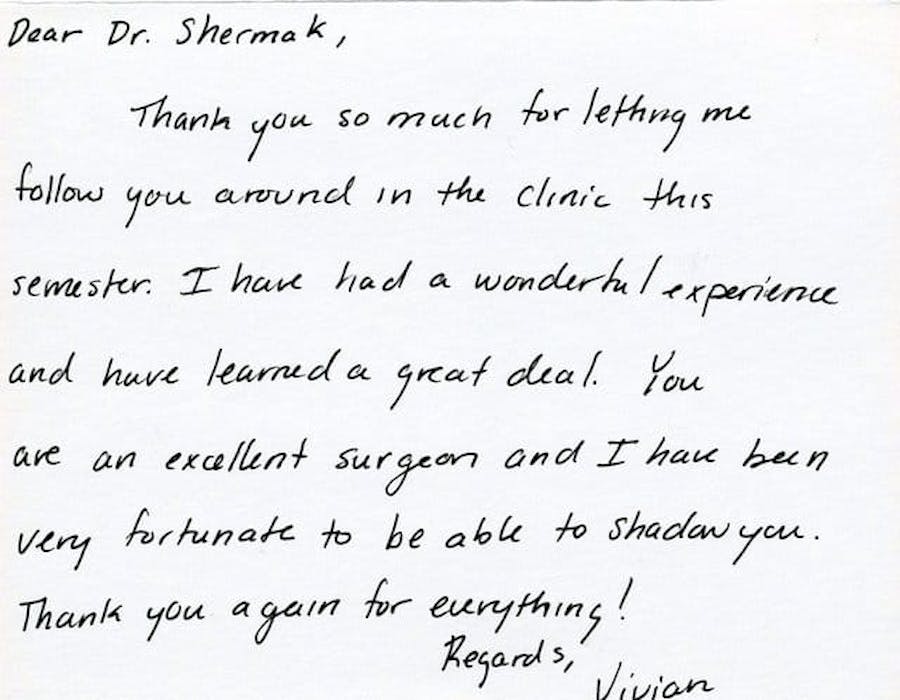 Dear Dr. Shermak,
Thank you so much for letting me
follow you around in the clinic this
semester. I have had a wonderful experience
and have learned a great deal. You
are an excellent surgeon and I have been
very fortunate to be able to shadow you.
Thank you again for everything!
Regards,
Vivian